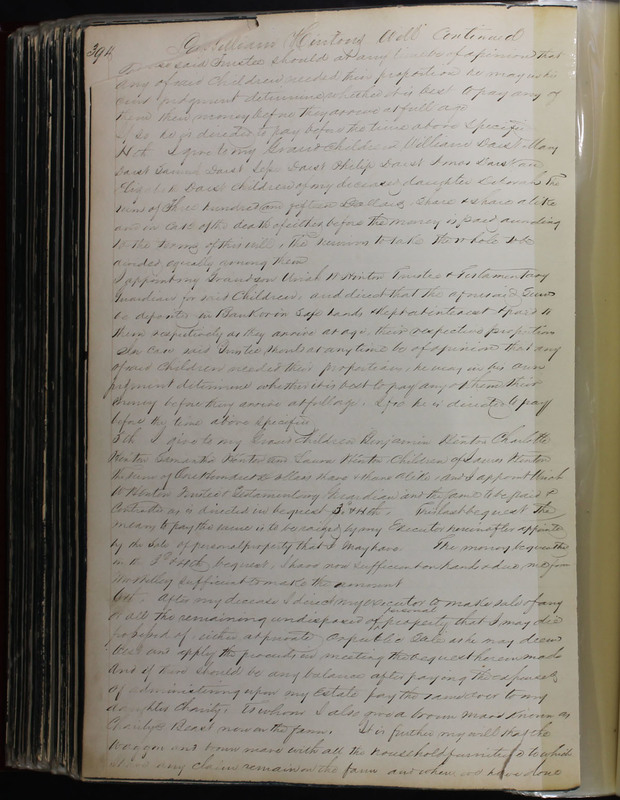 394 William Hinton's Will Continued
said Trustee should at any time be of opinion that
any of said Children needed their proportion he may in his
own judgment determine whether it is best to pay any of
them their money before they arrive at full age
If so he is directed to pay before the time above Specified
4th I give to my Grand Children William Daist Mary
Daist Samuel Daist Daist Philip Daist Daist and
Daist Children of my deceased daughter Deborah the
sum of Three hundred and fifteen Dollars, Share & share alike
and in case of the death of either before the money is paid according
to the terms of this will, the survivors to take the whole to be
divided equally among them
I appoint my Grandson Uriah W Hinton Trustee & Testamentary
Guardian for said Children, and direct that the aforesaid Sum
be deposited in Bank or in Safe hands & Kept at interest & paid to
them respectively as they arrive at age, their respective proportion
In Case said Trustee should at any time be of opinion that any
of said Children needed their proportion, he may in his own
judgment determine whether it is best to pay any of them their
money before they arrive at full age. If so he is directed to pay
before the time above specified
5th I give to my Grand Children Benjamin Hinton Charlotte
Hinton Hinton and Laura Hinton Children of James Hinton
the sum of One Hundred Dollars Share & share alike and I appoint Uriah
W Hinton Trustee & Testamentary Guardian and the same to be paid &
as is directed in bequest 3d & 4th. This last bequest The
means to pay the same is to be raised by my Executor hereinafter appointed
by the Sale of personal property that I may have. The money bequeathed
in the 3d & 4th bequest, I have now sufficient on hand & due me from
sufficient to make the amount
6th. After my decease I direct my executor to make sale of any
or all the remaining undisposed of personal property that I may die
possessed of, either at private or public Sale as he may deem
best and apply the proceeds in meeting the bequest herein made
And if there should be any balance after paying the expenses
of administering upon my Estate pay the remainder to my
daughter Charity. To whom I also give a brown mare known as
Charitys Beast now on the farm. It is further my will that the
Waggon and brown mare with all the household furniture to which
any claim remain on the farm and where we have done